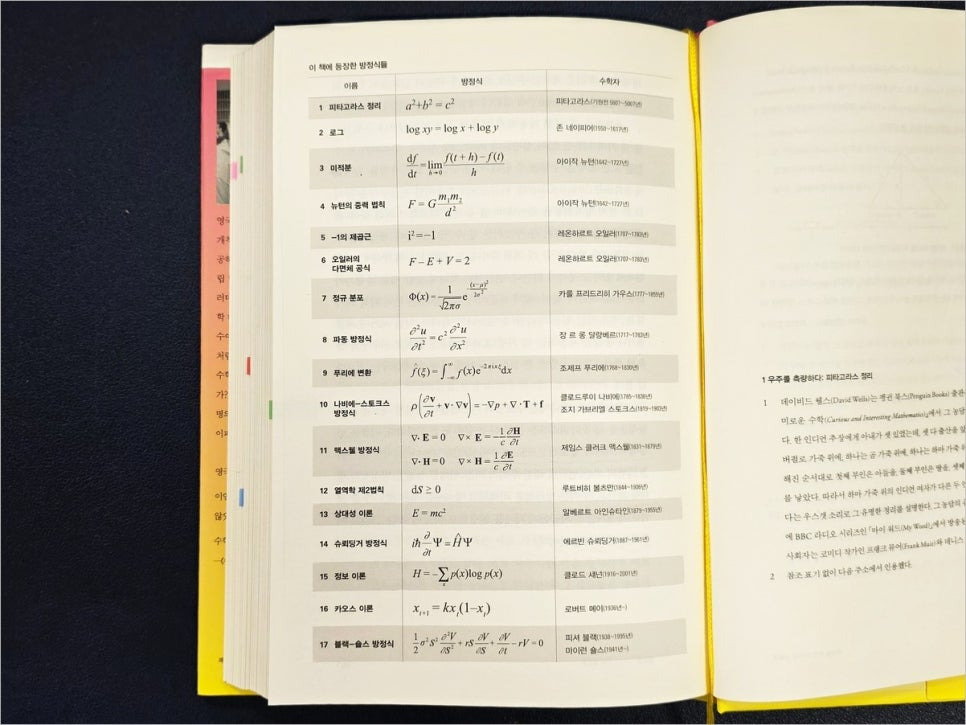 이 책에 등장한 방정식들
이름 방정식 수학자
1 피타고라스 정리 a²+b² = c² 피타고라스(기원전 580?~500?년)
2 로그 log xy = log x + log y 존 네이피어(1550~1617년)
3 미적분 df/dt = lim h→0 f(t + h) − f(t)/h 아이작 뉴턴(1642~1727년)
4 뉴턴의 중력 법칙 F = G m₁m₂/d² 아이작 뉴턴(1642~1727년)
5 −1의 제곱근 i² = −1 레온하르트 오일러(1707~1783년)
6 오일러의
다면체 공식 F − E + V = 2 레온하르트 오일러(1707~1783년)
7 정규 분포 Φ(x) = 1/√2πσ e (x−μ)²/2σ² 카를 프리드리히 가우스(1777~1855년)
8 파동 방정식 ∂²u/∂t² = c² ∂²u/∂x² 장 르 롱 달랑베르(1717~1783년)
9 푸리에 변환 f̂(ξ) = ∫−∞^∞ f(x)e^−2πixξ dx 조제프 푸리에(1768~1830년)
10 나비에−스토크스
방정식 ρ(∂v/∂t + v · ∇v) = −∇p + ∇ · T + f 클로드루이 나비에(1785~1836년)
조지 가브리엘 스토크스(1819~1903년)
11 맥스웰 방정식 ∇· E = 0 ∇× E = −1/c ∂H/∂t
∇· H = 0 ∇× H = 1/c ∂E/∂t 제임스 클러크 맥스웰(1831~1879년)
12 열역학 제2법칙 dS ≥ 0 루트비히 볼츠만(1844~1906년)
13 상대성 이론 E = mc² 알베르트 아인슈타인(1879~1955년)
14 슈뢰딩거 방정식 iħ ∂/∂t Ψ = ĤΨ 에르빈 슈뢰딩거(1887~1961년)
15 정보 이론 H = −∑x p(x) log p(x) 클로드 섀넌(1916~2001년)
16 카오스 이론 xₜ₊₁ = kxₜ(1−xₜ) 로버트 메이(1936년~)
17 블랙−숄스 방정식 1/2 σ²S² ∂²V/∂S² + rS ∂V/∂S + ∂V/∂t − rV = 0 피셔 블랙(1938~1995년)
마이런 숄스(1941년~)
1 우주를 측량하다: 피타고라스 정리
1 데이비드 웰스(David Wells)는 펭귄 북스(Penguin Books) 출판
미로운 수학(Curious and Interesting Mathematics)』에서 그 농담
다. 한 인디언 추장에게 아내가 셋 있었는데, 셋 다 출산을 앞
버펄로 가죽 위에, 하나는 곰 가죽 위에, 하나는 하마 가죽 위
해진 순서대로 첫째 부인은 아들을, 둘째 부인은 딸을, 셋째
를 낳았다. 따라서 하마 가죽 위의 인디언 여자가 다른 두
다는 우스갯소리로 그 유명한 정리를 설명한다. 그 농담의
에 BBC 라디오 시리즈인 「마이 워드(My Word)」에서 방송
사회자는 코미디 작가인 프랭크 뮤어(Frank Muir)와 데니스
2 참조 표기 없이 다음 주소에서 인용했다.